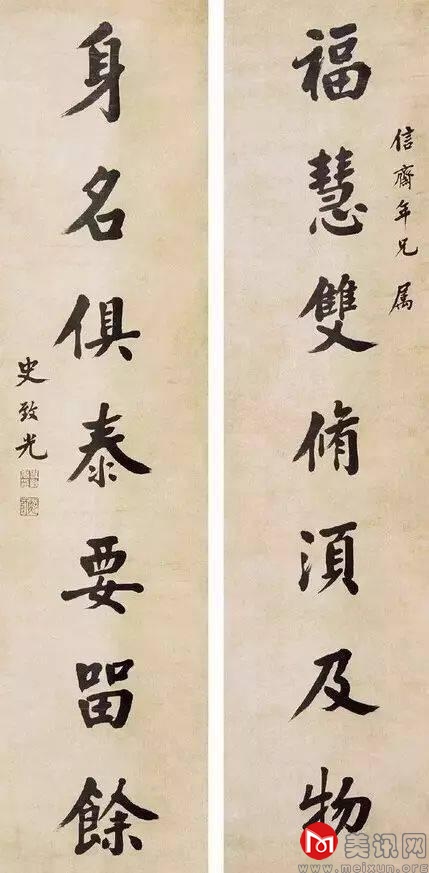 信齋年兄屬
福慧雙脩須及物
身名俱泰要留餘
史致光
美讯网
www.meixun.org